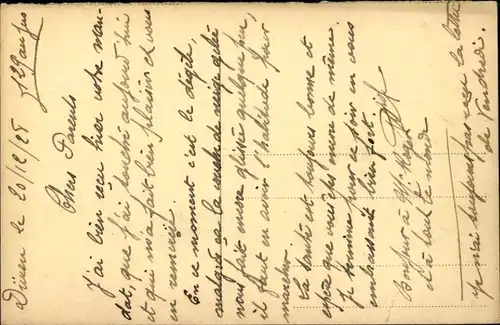 le 20/12/25
Chers Parents
J'ai bien reçu hier votre man-
dat, que j'ai touché aujourd'hui
et qui m'a fait bien plaisir et vous
en remercie.
En ce moment c'est le dégel,
malgré ça la couche de neige gelée
nous fait encore glisser quelque peu,
il faut en avoir l'habitude pour
marcher.
La santé est toujours bonne et
espère que vous plus même de même.
Je termine pour ce soir en vous
embrassant bien fort.
Bonjour à Mr Roger
et à tout le monde
Je n'ai toujours pas reçu la lettre
de Vendredi.